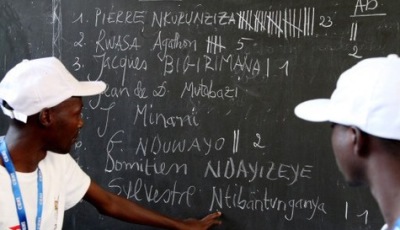 1. PIERRE NKURUNZIZA 23
2. RWASA Agathon 5
3. Jacques BIGIRIMANA 1
Jean de D. Mutabazi
J. Minani
G. NDUWAYO 2
Domitien NDAYIZEYE
Sylvestre Ntibantunganya 1
AB